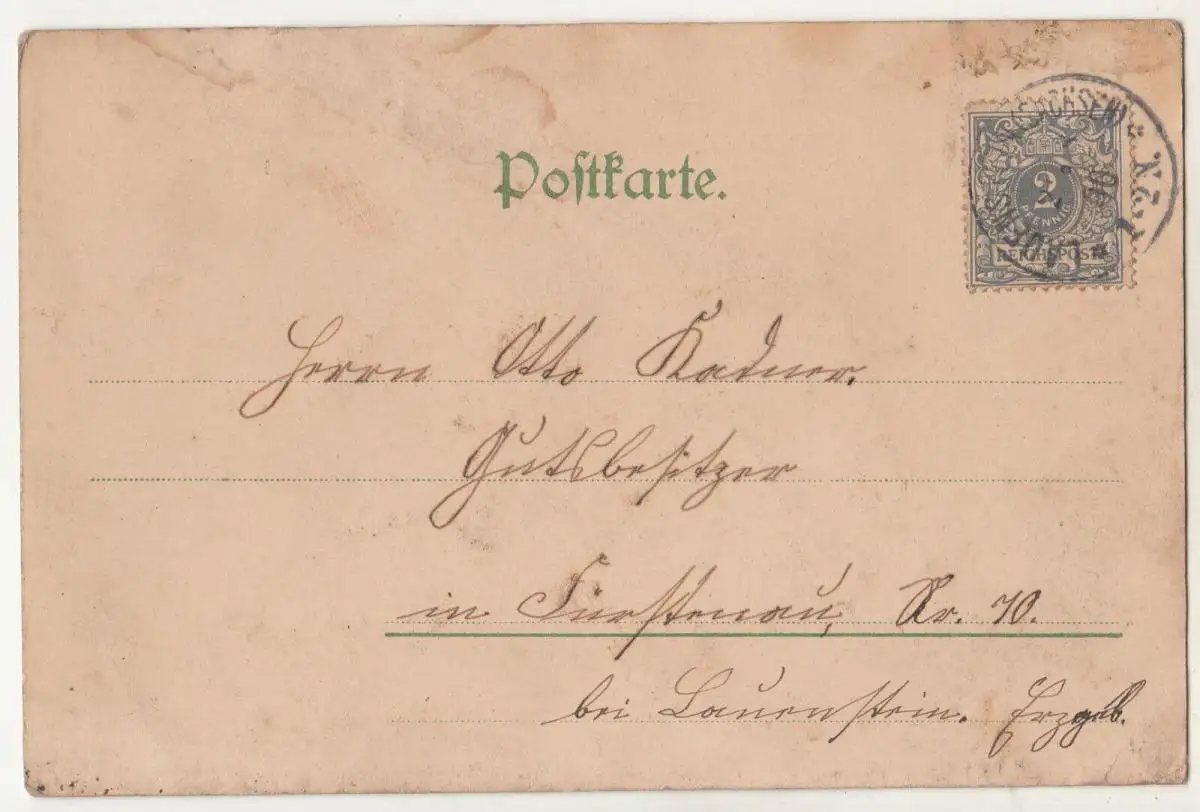 Postkarte.
2
PFENNIG
REICHSPOST
Herrn Otto Kadner.
Gutsbesitzer
in Fürstenau, Nr. 70.
bei Lauenstein. Erzgeb.